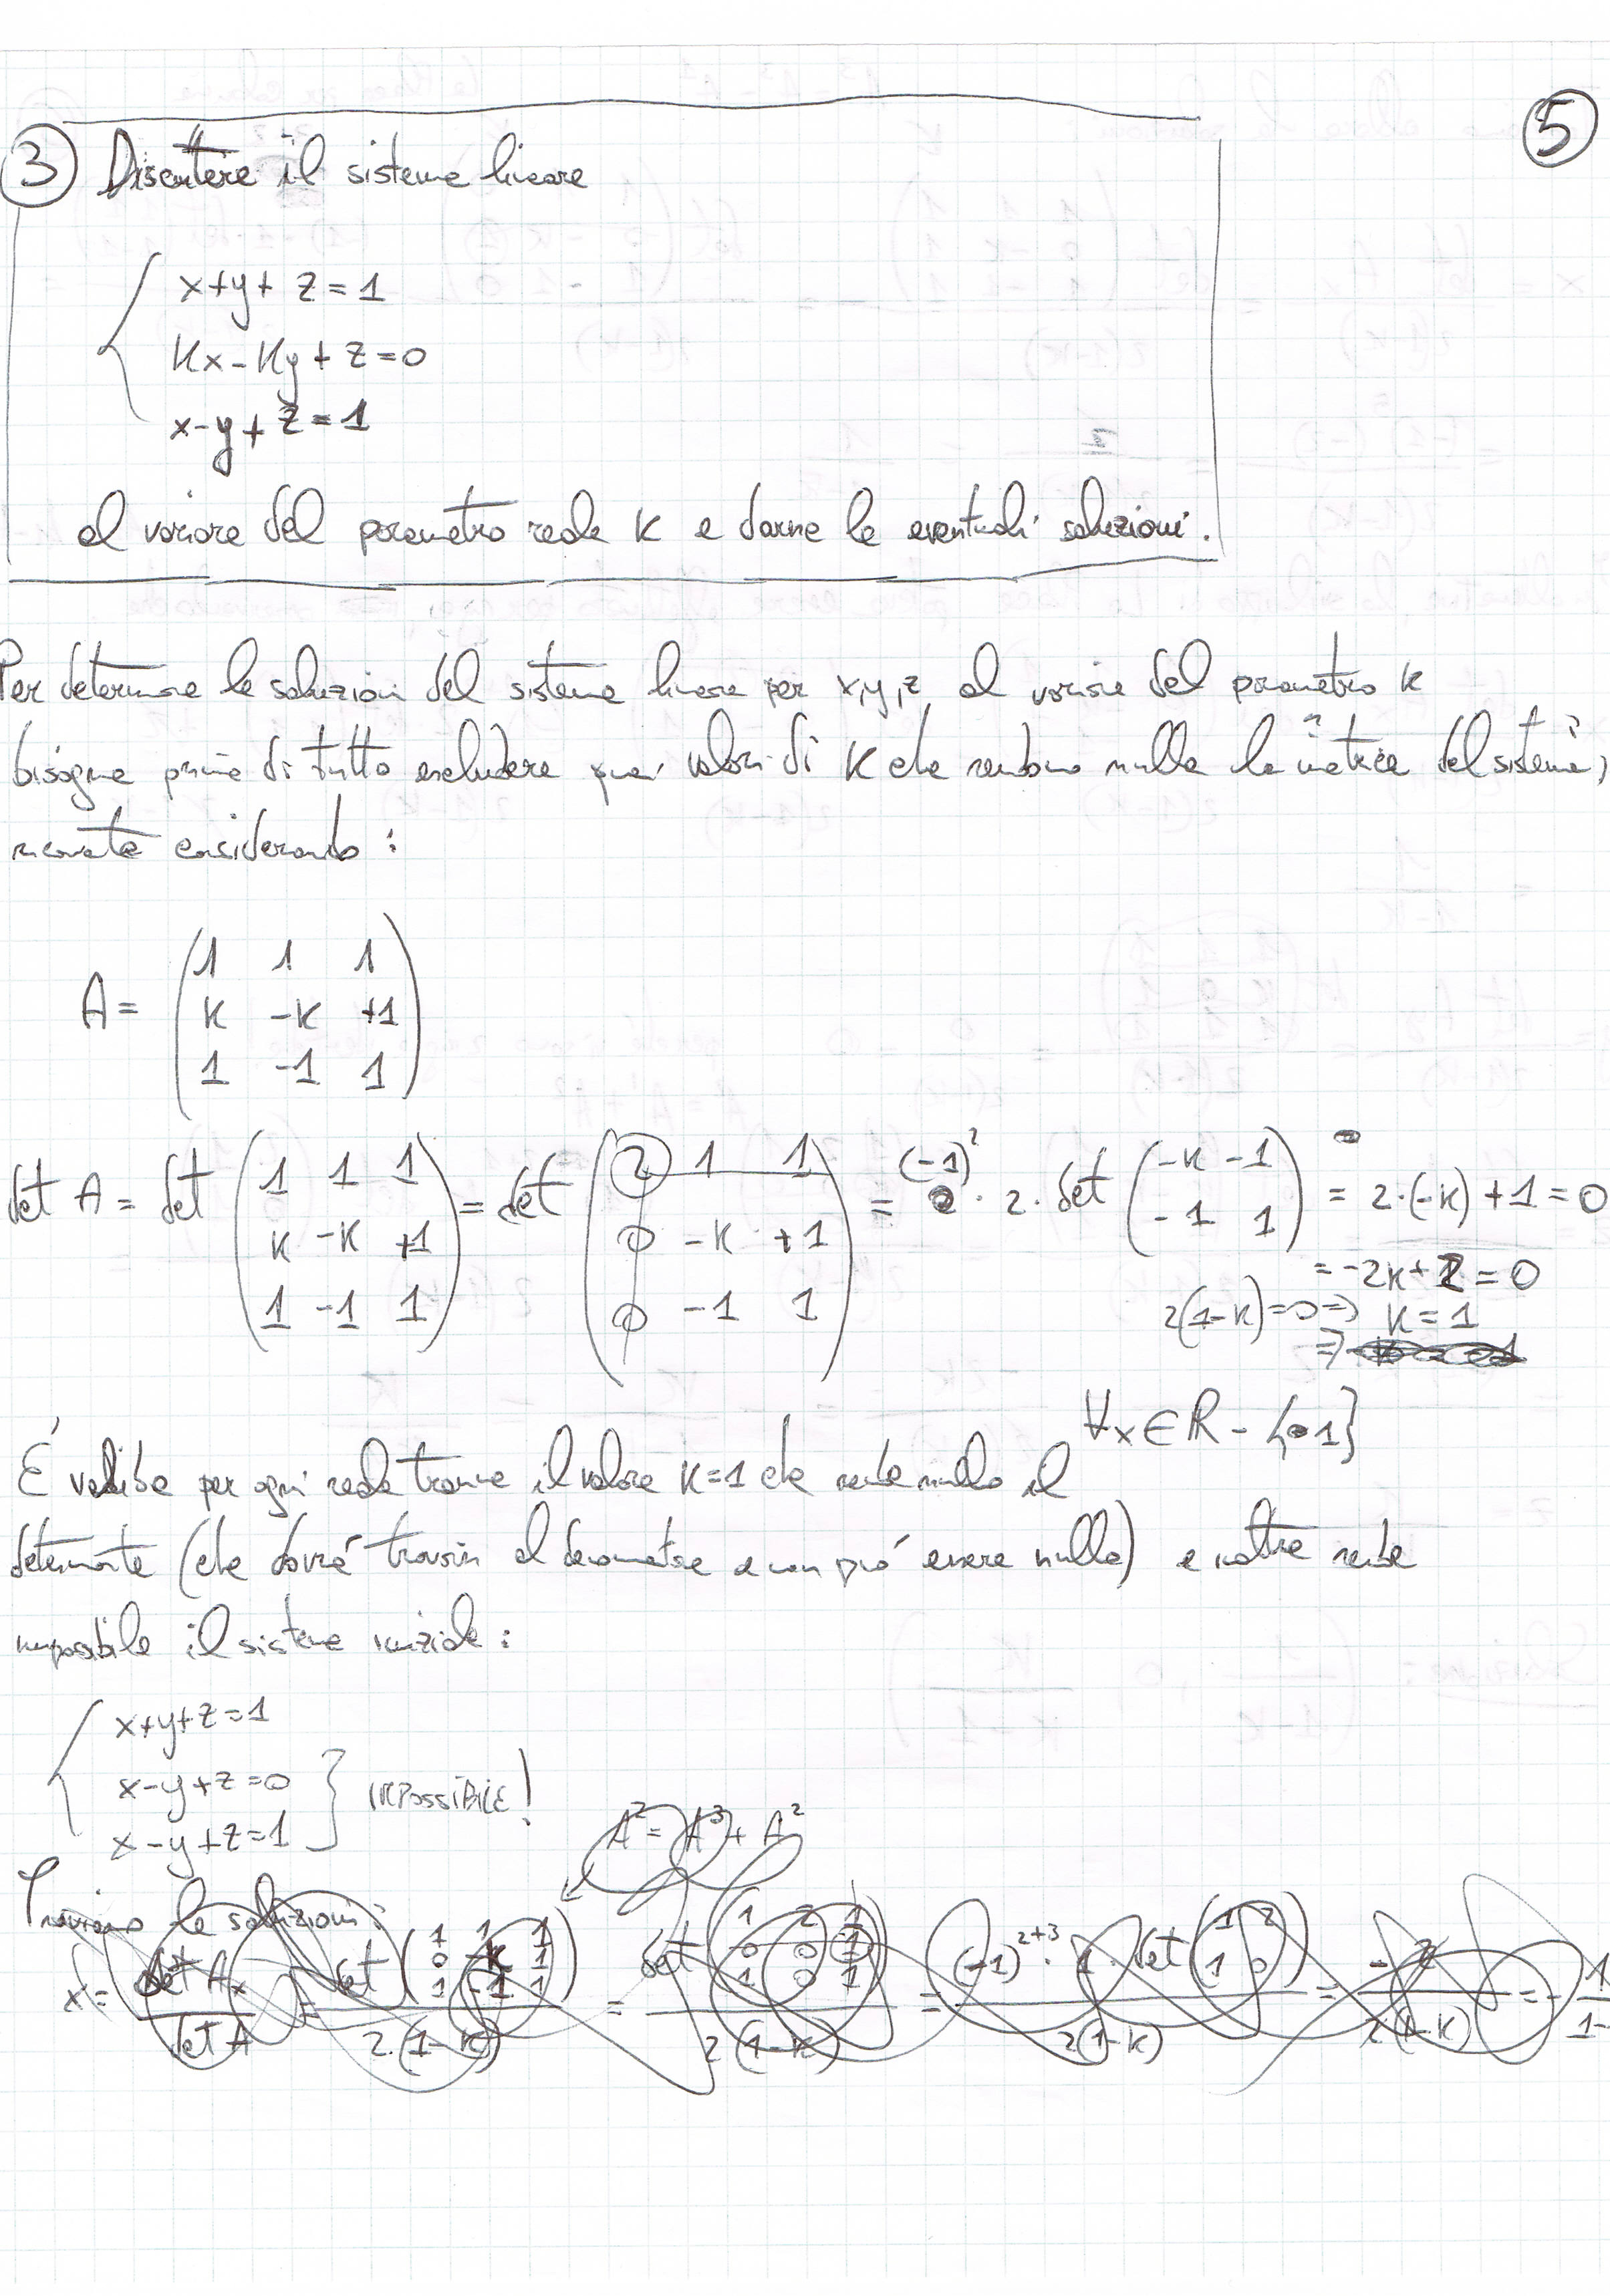 5
3 Discutere il sistema lineare
x+y+z=1
Kx-Ky+z=0
x-y+z=1
al variare del parametro reale K e darne le eventuali soluzioni.
Per determinare le soluzioni del sistema lineare per x,y,z al variare del parametro K
bisogna prima di tutto escludere quei valori di K che rendono nulla la matrice del sistema,
ricavata considerando:
A = ( 1 1 1
K -K +1
1 -1 1 )
det A = det ( 1 1 1 ; K -K +1 ; 1 -1 1 ) = det ( 2 1 1 ; 0 -K +1 ; 0 -1 1 ) = (-1)² · 2 · det ( -K -1 ; -1 1 ) = 2·(-K)+1=0
= -2K+2=0
2(1-K)=0 => K=1
=>
∀x∈R-{1}
É valida per ogni reale tranne il valore K=1 che rende nullo il
determinante (che dovrà trovarsi al denominatore e non può essere nullo) e inoltre rende
impossibile il sistema iniziale:
x+y+z=1
x-y+z=0
x-y+z=1
IMPOSSIBILE!
A²=A³+A²
Troviamo le soluzioni:
x = det Ax / det A = det ( 1 1 1 ; 0 -K 1 ; 1 -1 1 ) / 2·(1-K) = det ( 1 2 1 ; 0 0 1 ; 1 0 1 ) / 2(1-K) = (-1)²⁺³ · 1 · det ( 1 2 ; 1 0 ) / 2(1-K) = -2 / 2(1-K) = - 1 / 1-